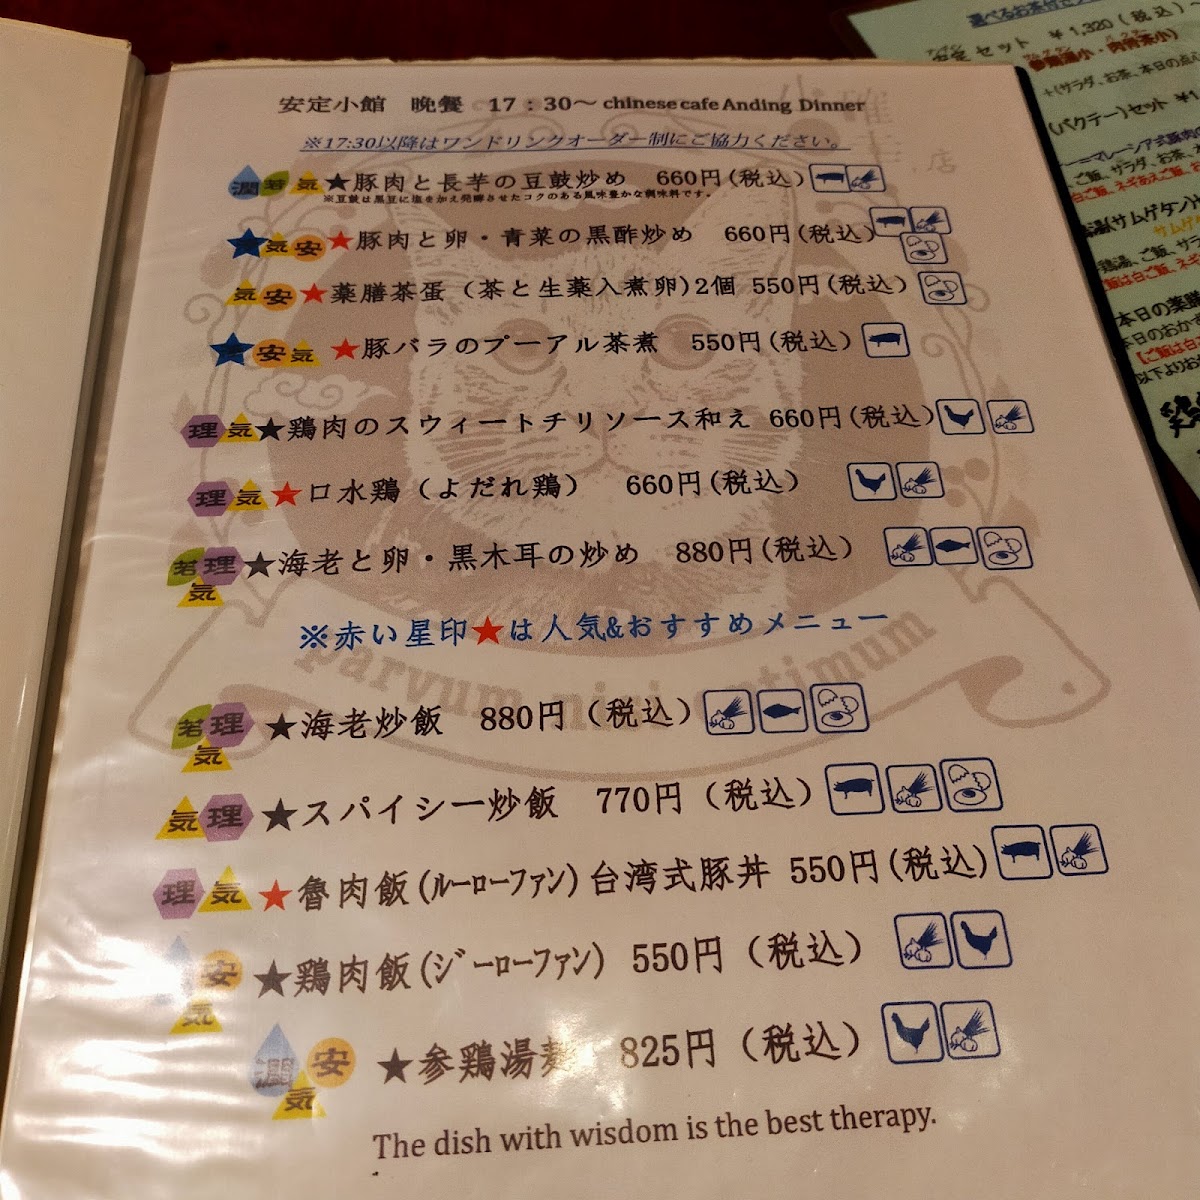 安定小館　晩餐　17：30～ chinese cafe Anding Dinner
※17:30以降はワンドリンクオーダー制にご協力ください。
潤 若 気 ★豚肉と長芋の豆鼓炒め　660円(税込)
※豆鼓は黒豆に塩を加え発酵させたコクのある風味豊かな調味料です。
気 安 ★豚肉と卵・青菜の黒酢炒め　660円(税込)
気 安 ★薬膳茶蛋（茶と生薬入煮卵)2個 550円(税込)
安 気 ★豚バラのプーアル茶煮　550円(税込)
理 気 ★鶏肉のスウィートチリソース和え 660円(税込)
理 気 ★口水鶏（よだれ鶏）　660円(税込)
若 理 気 ★海老と卵・黒木耳の炒め　880円(税込)
※赤い星印★は人気&おすすめメニュー
parvum nisi optimum
若 理 気 ★海老炒飯　880円（税込）
気 理 ★スパイシー炒飯　770円（税込）
理 気 ★魯肉飯(ﾙｰﾛｰﾌｧﾝ)台湾式豚丼 550円(税込)
安 気 ★鶏肉飯(ｼﾞｰﾛｰﾌｧﾝ) 550円（税込）
潤 安 気 ★参鶏湯麺　825円（税込）
The dish with wisdom is the best therapy.
選べるお茶付セ
セット ￥1,320(税込)～
参鶏湯小・肉骨茶小)
+(サラダ、お茶、本日の点
(バクテー)セット ￥1
マレーシア式豚肉
ご飯、サラダ、お茶、
白ご飯、ネギあえご飯、お
サムゲタン
鶏湯、ご飯、サラ
飯は白ご飯、ネギ
本日の薬膳
本日のおかず
【ご飯は白
以下よりお